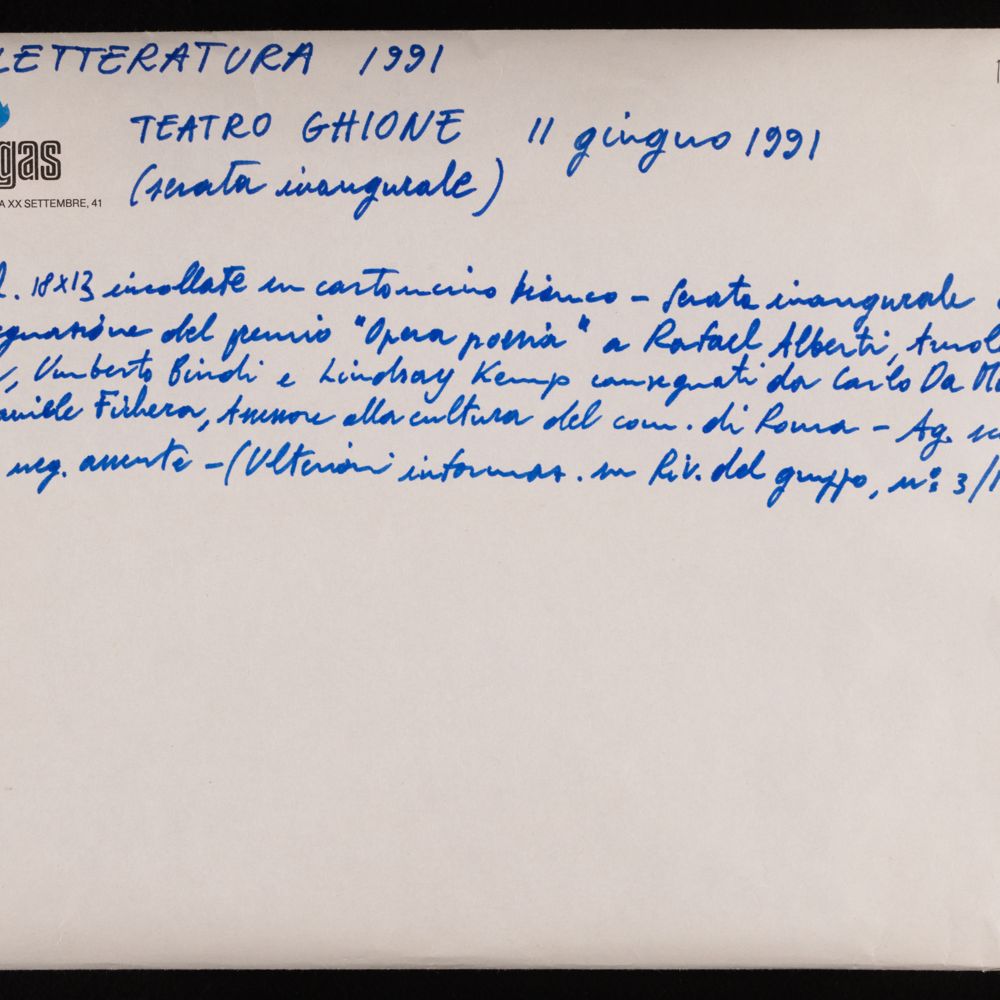 LETTERATURA 1991
TEATRO GHIONE 11 giugno 1991
gas
(serata inaugurale)
A XX SETTEMBRE, 41
18x13 incollate in cartoncino bianco - Serata inaugurale
del premio "Opera poesia" a Rafael Alberti,
Umberto Bindi e Lindsay Kemp consegnati da Carlo Da
Fichera, Assessore alla cultura del com. di Roma - Ag.
neg. assente - (Ulteriori informaz. su Riv. del gruppo, n°: 3/